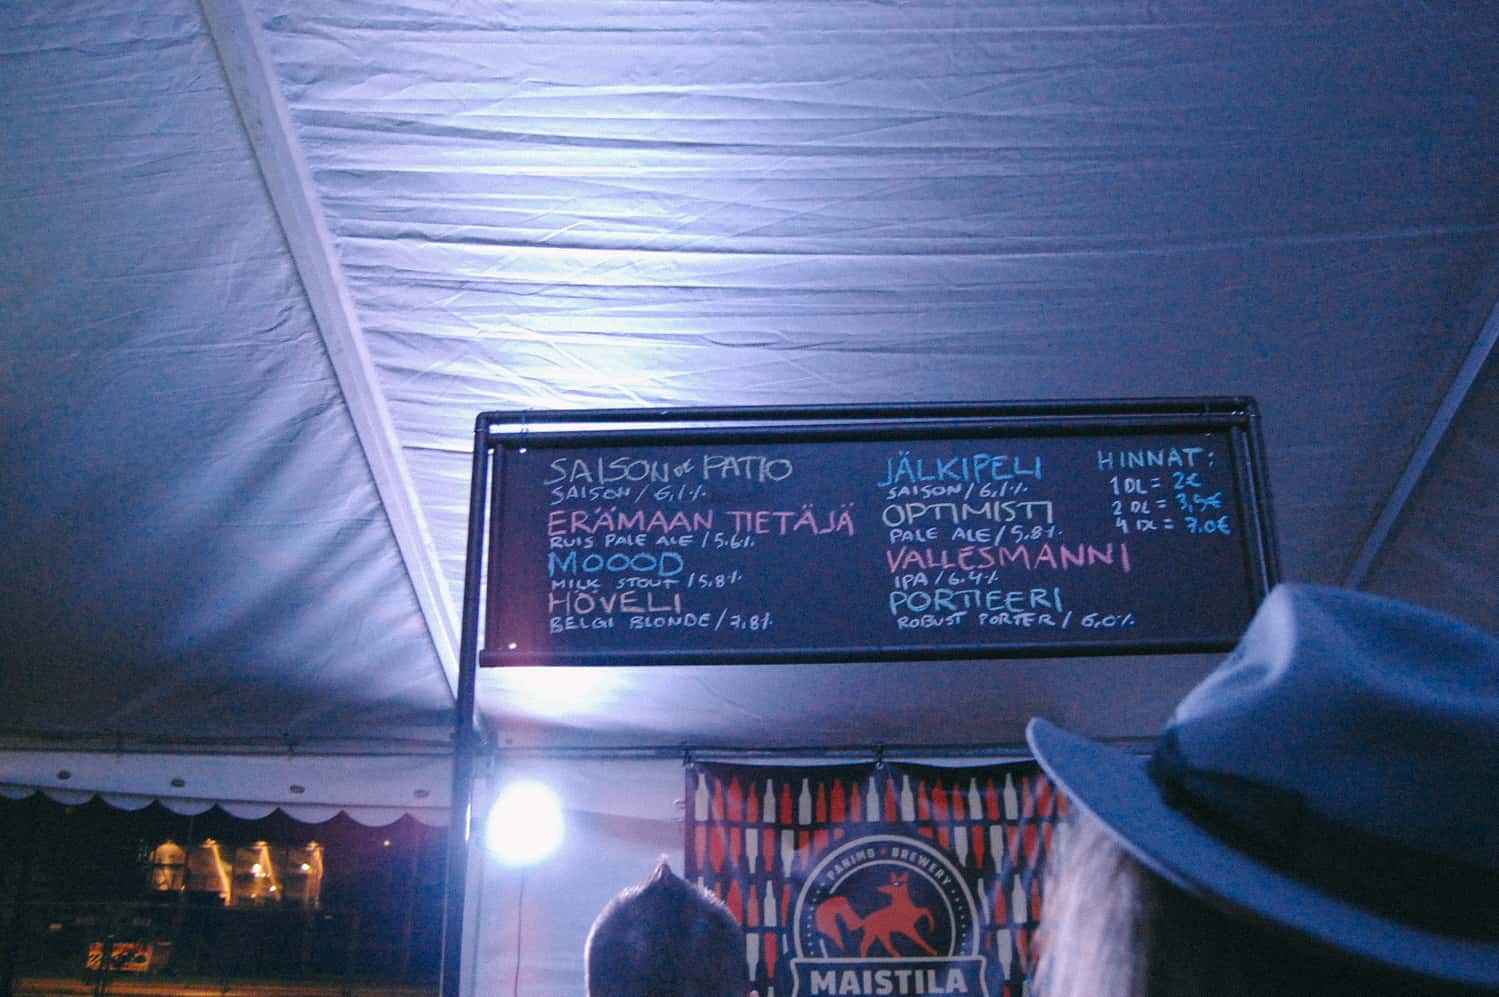 SAISON DE PATIO
SAISON / 6,1%
ERÄMAAN TIETÄJÄ
RUIS PALE ALE / 5.6%
MOOOD
MILK STOUT / 5,8%
HÖVELI
BELGI BLONDE / 7,8%
JÄLKIPELI
SAISON / 6,1%
OPTIMISTI
PALE ALE / 5,8%
VALLESMANNI
IPA / 6.4%
PORTIEERI
ROBUST PORTER / 6,0%
HINNAT:
1 DL = 2€
2 DL = 3,5€
4 DL = 7.0€
PANIMO • BREWERY
MAISTILA